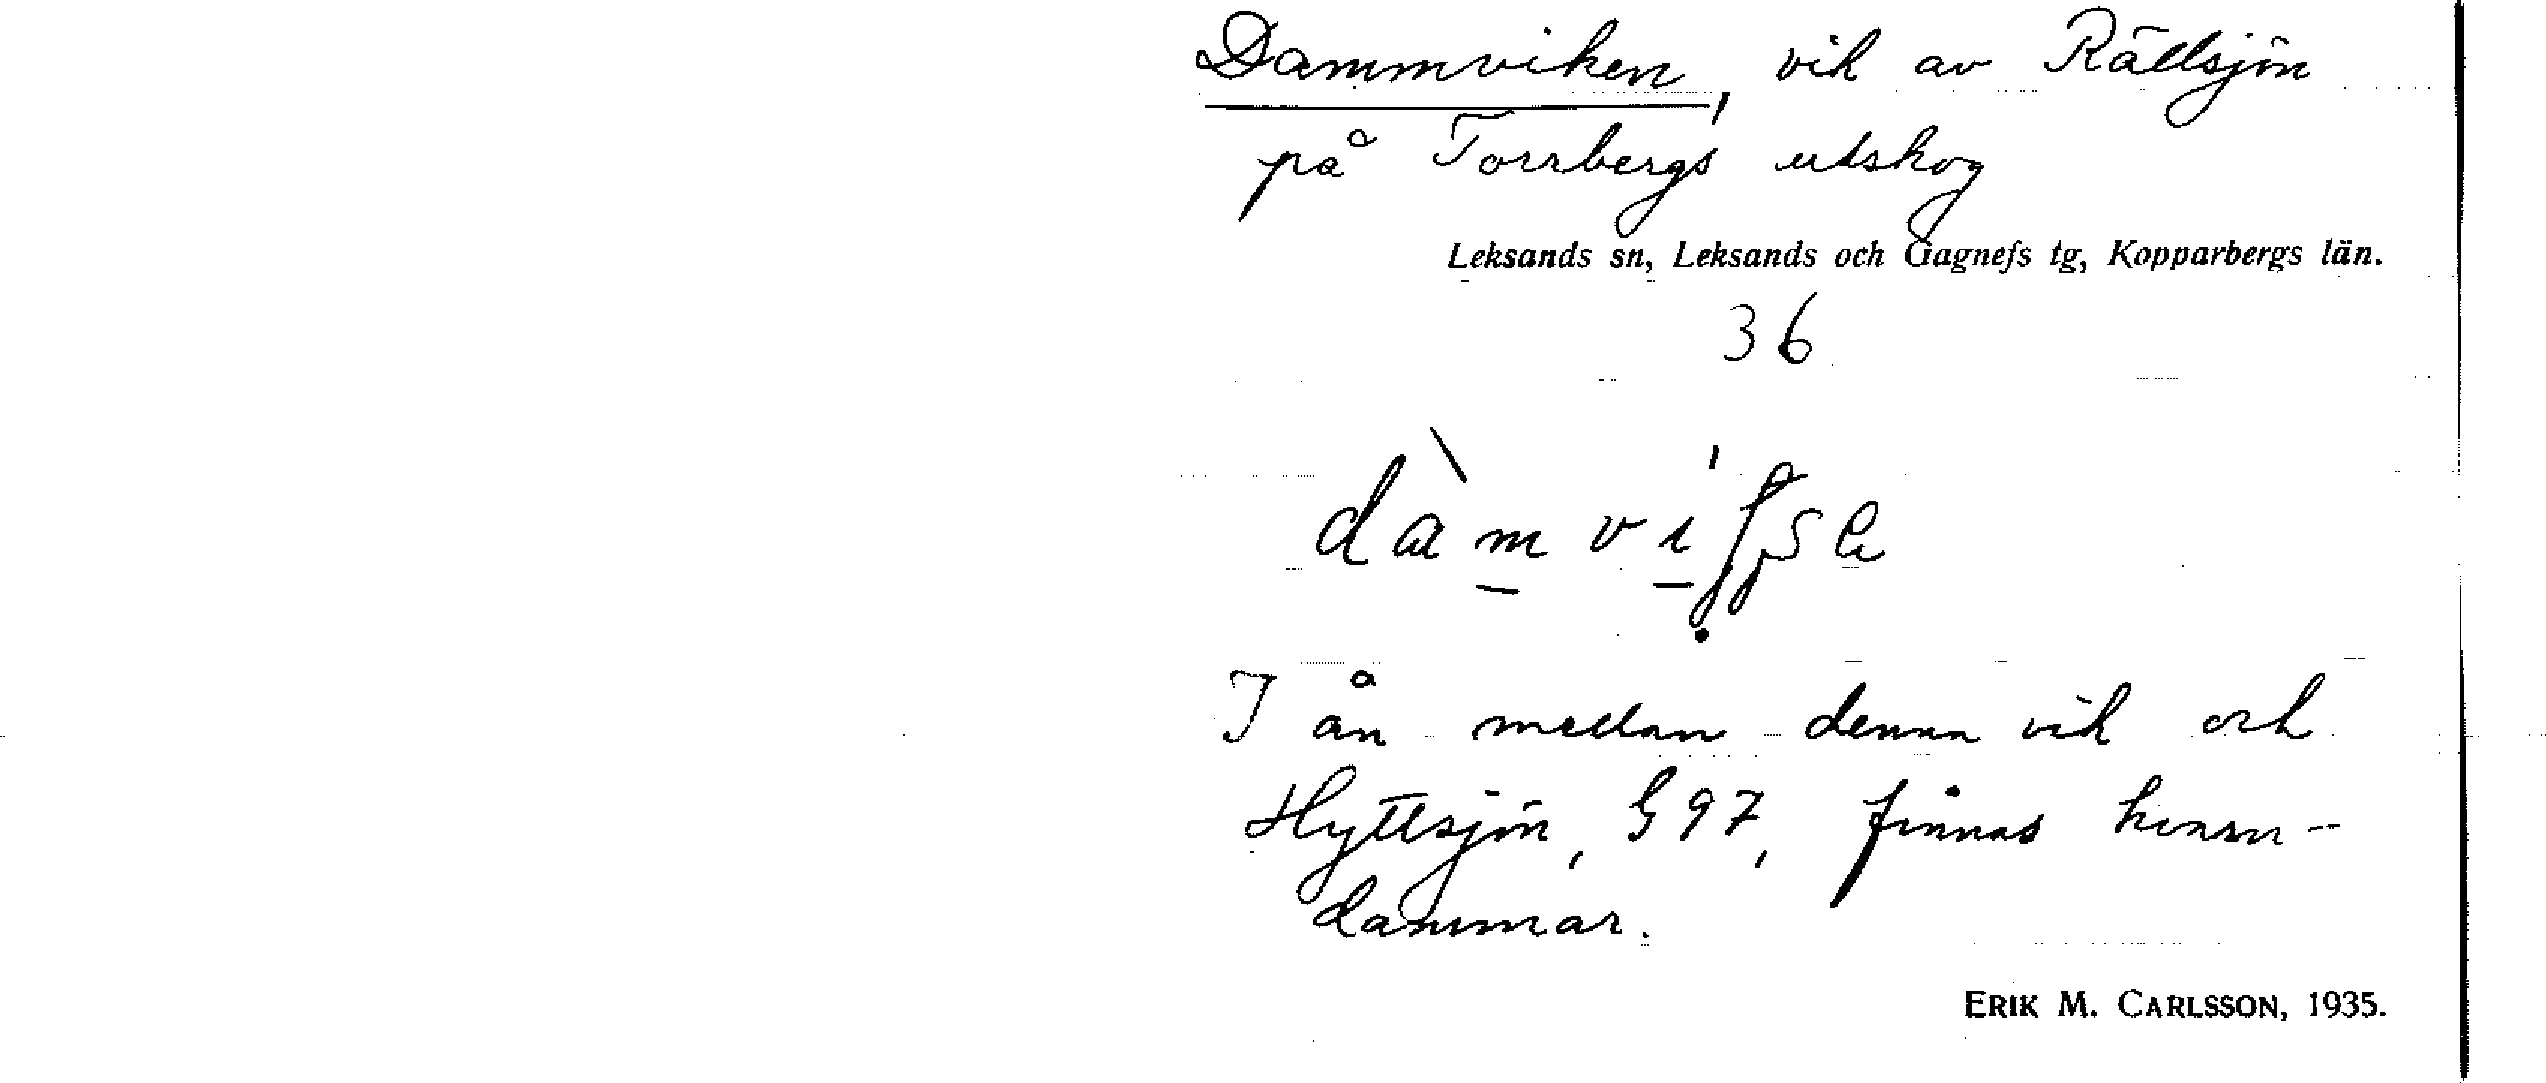 Dammviken, vik av Rällsjön
på Torrbergs utskog
Leksands sn, Leksands och Gagnefs tg, Kopparbergs län.
36
I ån mellan denna vik och
Hyttsjön, G 97, finnas kvarn-
dammar.
ERIK M. CARLSSON, 1935.